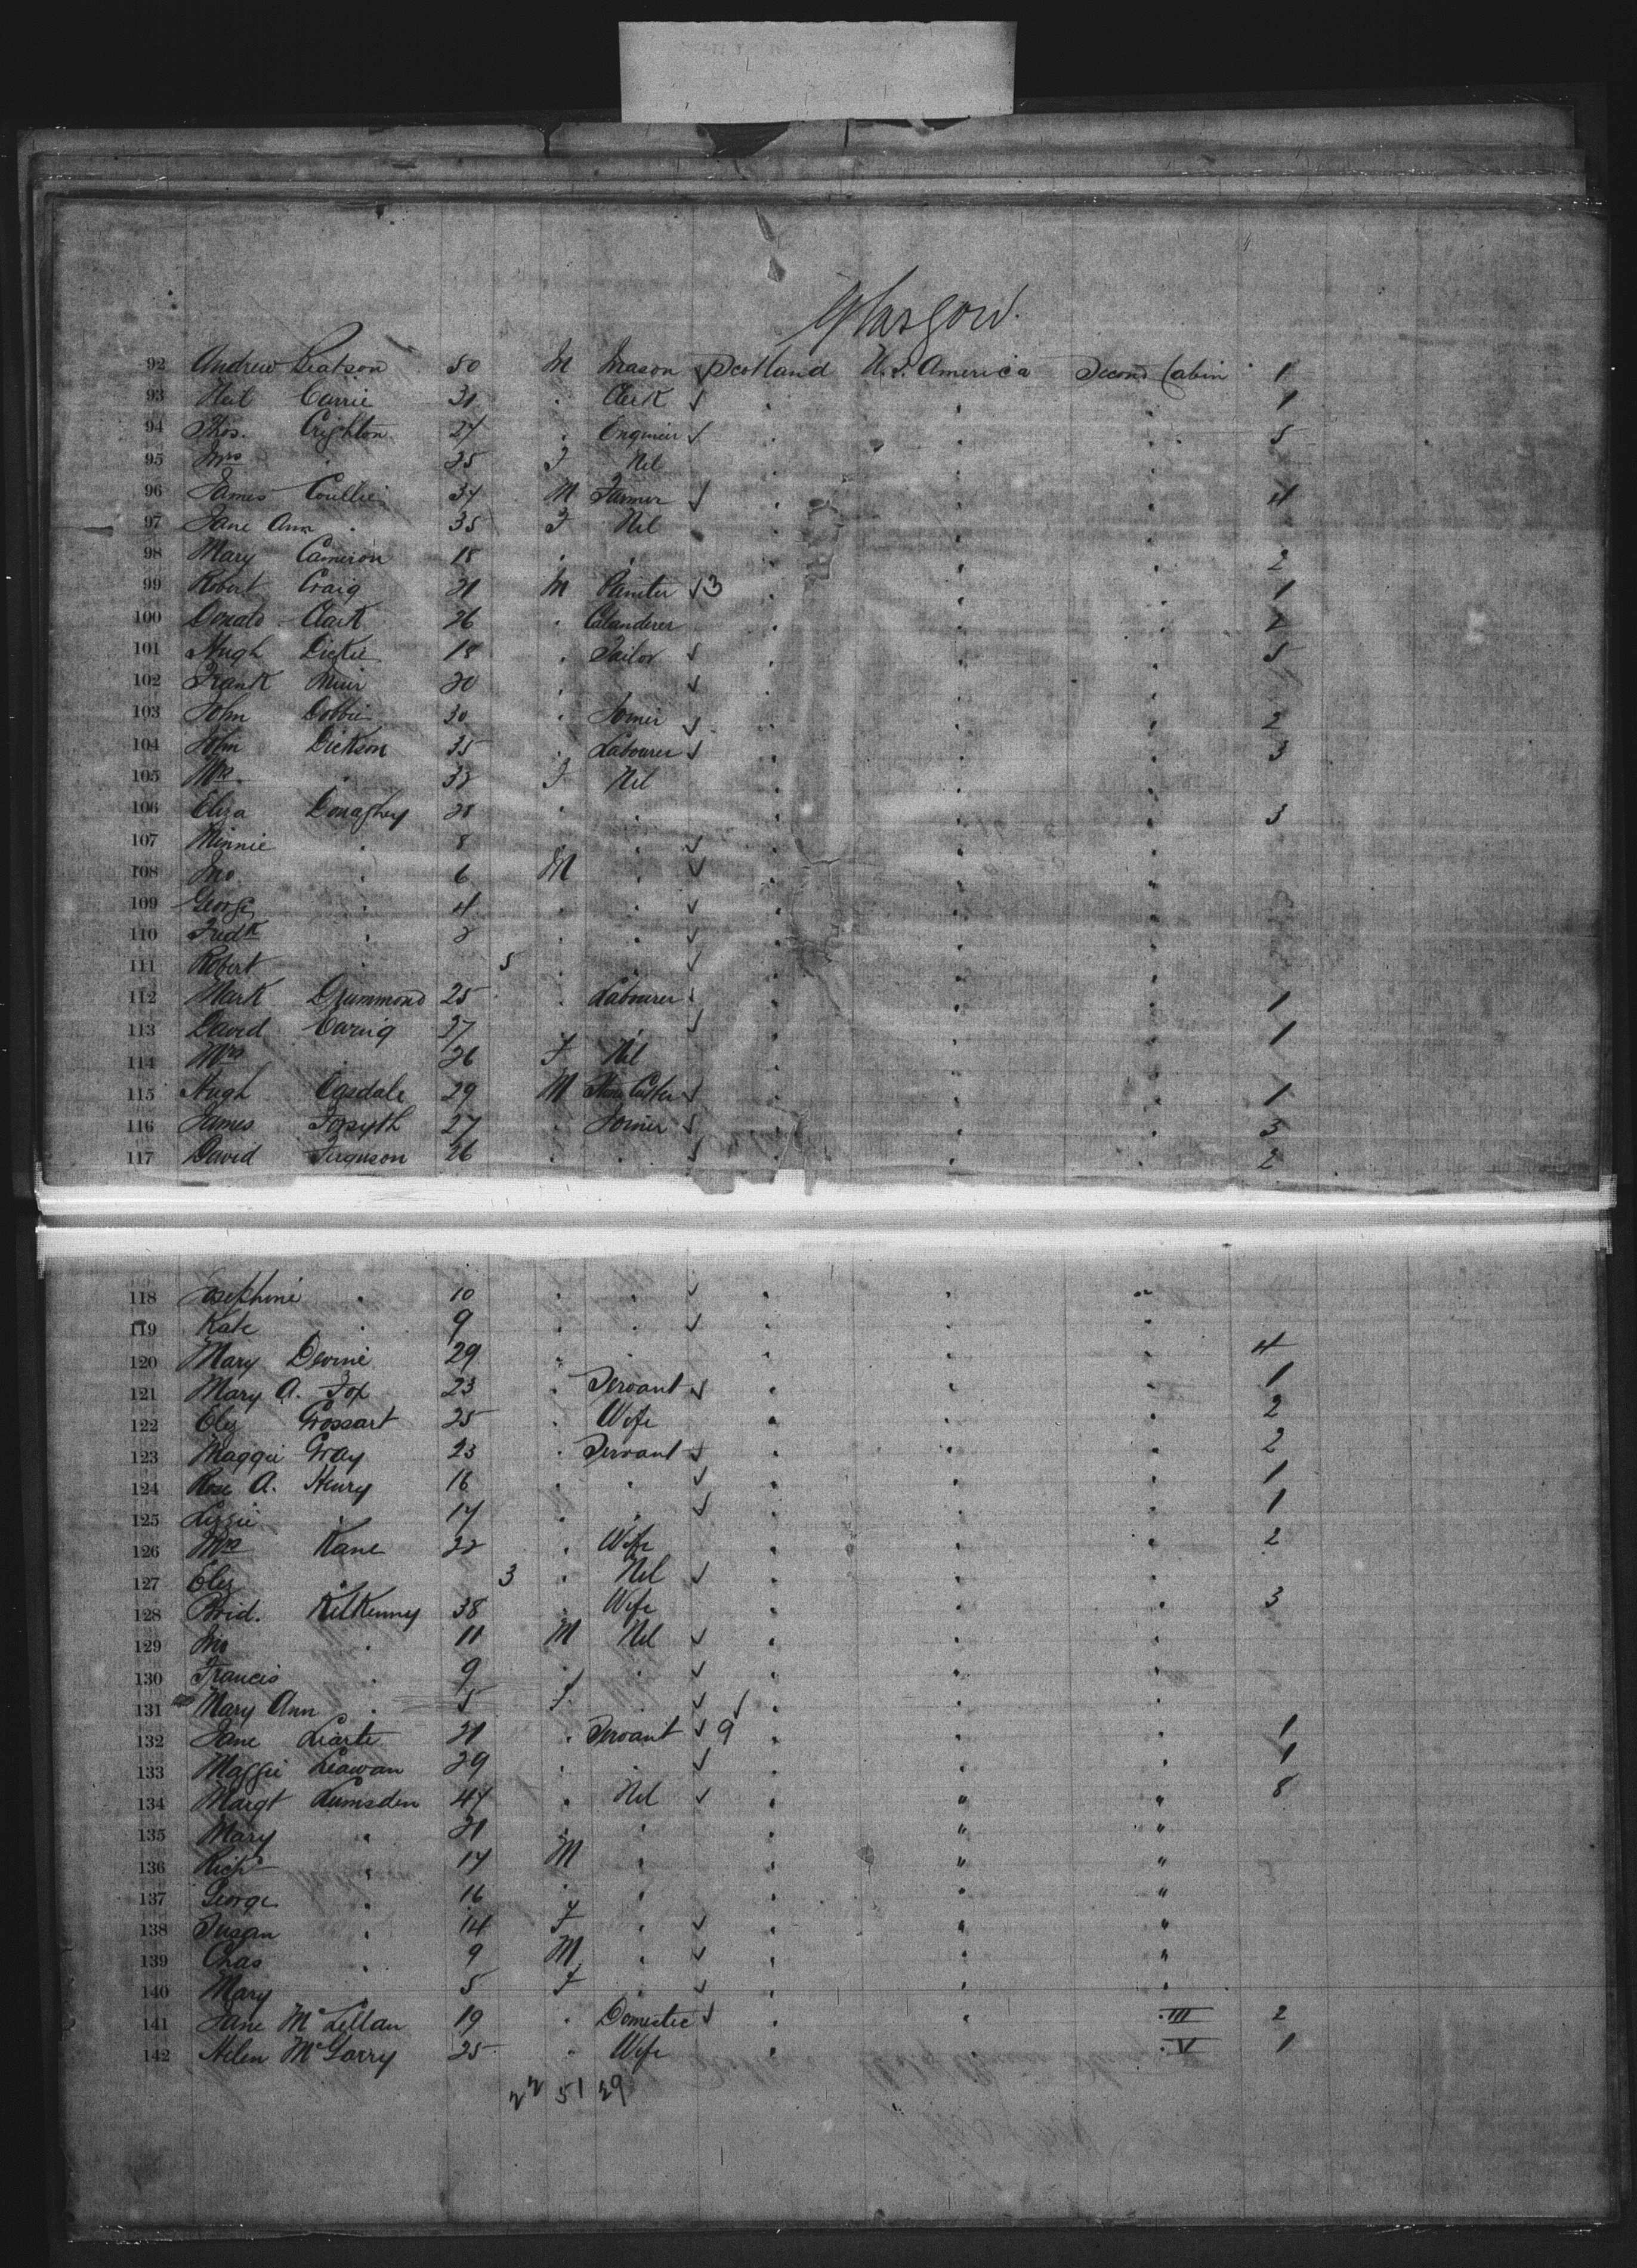 Glasgow.
92 Andrew Beatson 50 M Mason Scotland U.S. America Second Cabin 1
93 Neil Currie 31 " Clerk " " " 1
94 Thos. Crighton 27 " Engineer " " " 5
95 Mrs " 25 F Nil " " "
96 James Coullie 34 M Farmer " " " 4
97 Jane Ann " 35 F Nil " " "
98 Mary Cameron 18 " " " " " 2
99 Robert Craig 21 M Painter 3 " " " 1
100 Donald Clark 26 " Calanderer " " " 2
101 Hugh Dickie 18 " Tailor " " " 5
102 Frank Muir 20 " " " " "
103 John Dobbie 30 " Joiner " " " 2
104 John Dickson 35 " Labourer " " " 3
105 Mrs " 32 F Nil " " "
106 Eliza Donaghey 28 " " " " " 3
107 Minnie " 8 " " " " "
108 Jno " 6 M " " " "
109 George " 4 " " " " "
110 Fredk " 2 " " " " "
111 Robert " 5 " " " " "
112 Mark Drummond 25 " Labourer " " " 1
113 David 27 " " " " 1
114 Mrs " 26 F Nil " " "
115 Hugh 29 M Stone Cutter " " " 1
116 James Forsyth 27 " Joiner " " " 3
117 David Ferguson 26 " " " " " 2
118 Josephine " 10 " " " " "
119 Kate " 9 " " " " "
120 Mary Devine 29 " " " " " 4
121 Mary A. Fox 23 " Servant " " " 1
122 Eliz Grossart 25 " Wife " " " 2
123 Maggie Gray 23 " Servant " " " 2
124 Rose A. Henry 16 " " " " " 1
125 Lizzie " 17 " " " " " 1
126 Mrs Kane 22 " Wife " " " 2
127 Eliz " 3 " Nil " " "
128 Brid. Kilkenny 38 " Wife " " " 3
129 Jno " 11 M Nil " " "
130 Francis " 9 " " " " "
131 Mary Ann " 5 F " " " "
132 Jane 21 " Servant 9 " " " 1
133 Maggie 29 " " " " " 1
134 Margt Lumsden 47 " Nil " " " 8
135 Mary " 21 " " " " "
136 Richd " 17 M " " " "
137 George " 16 " " " " "
138 Susan " 14 F " " " "
139 Chas " 9 M " " " "
140 Mary " 5 F " " " "
141 Jane McLellan 19 " Domestic " " " III 2
142 Helen McGarry 25 " Wife " " V 1
22 51 29